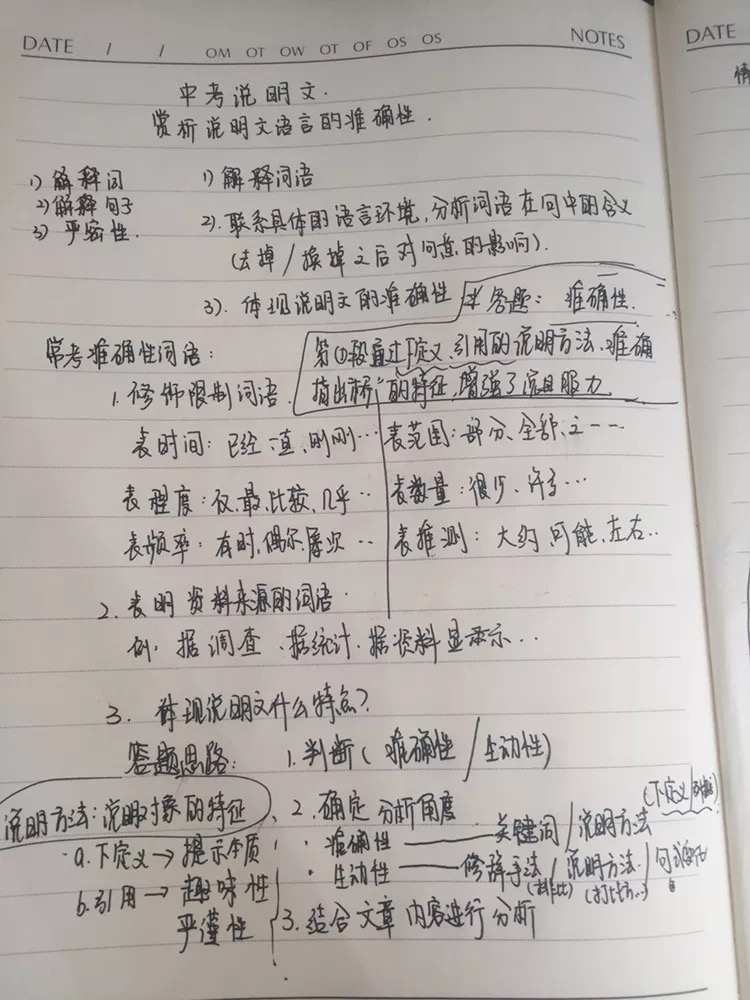 DATE / / OM OT OW OT OF OS OS NOTES
DATE
情
中考说明文.
赏析说明文语言的准确性.
1) 解释词
2) 解释句子
3) 严密性.
1) 解释词语
2). 联系具体的语言环境, 分析词语在句中的含义
(去掉/换掉之后对句意的影响).
3). 体现说明文的准确性
答题: 准确性.
第①段通过下定义、引用的说明方法、准确
指出桥的特征, 增强了说服力
常考准确性词语:
1. 修饰限制词语.
表时间: 已经 一直、刚刚…
表范围: 部分、全部、之一…
表程度: 仅、最、比较、几乎…
表数量: 很少、许多…
表频率: 有时, 偶尔、屡次…
表推测: 大约、可能、左右…
2. 表明资料来源的词语.
例: 据调查、据统计、据资料显示…
3. 体现说明文什么特点?
答题思路: 1. 判断 (准确性/生动性)
说明方法: 说明对象的特征
a. 下定义→提示本质
b. 引用→趣味性
严谨性
2. 确定分析角度
准确性——关键词/说明方法
生动性——修辞手法/说明方法/句式
(打比方..)
3. 结合文章内容进行分析